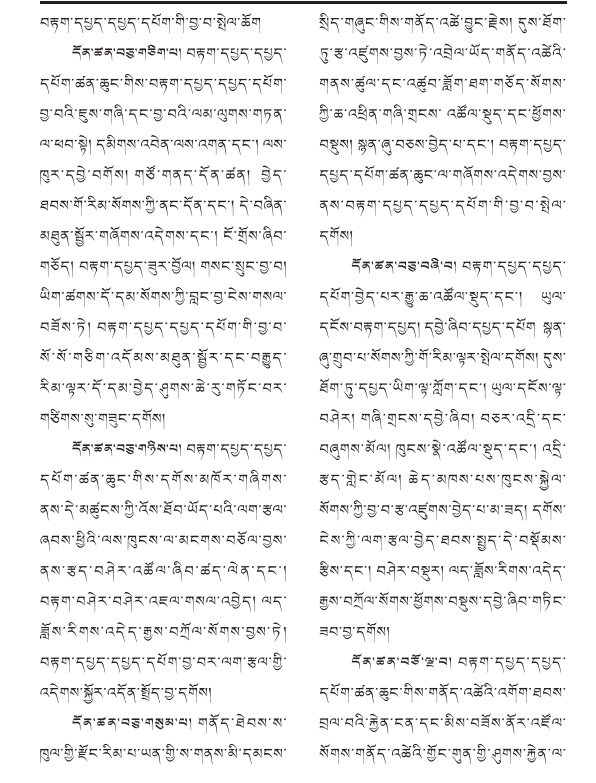 བརྟག་དཔྱད་དཔྱད་དཔོག་གི་བྱ་བ་སྤེལ་ཆོག
དོན་ཚན་བཅུ་གཅིག་པ། བརྟག་དཔྱད་དཔྱད་
དཔོག་ཚན་ཆུང་གིས་བརྟག་དཔྱད་དཔྱད་དཔོག་
བྱ་བའི་ཇུས་གཞི་དང་བྱ་བའི་ལམ་ལུགས་གཏན་
ལ་ཕབ་སྟེ། དམིགས་འབེན་ལས་འགན་དང་། ལས་
ཁུར་དབྱེ་བགོས། གཙོ་གནད་དོན་ཚན། བྱེད་
ཐབས་གོ་རིམ་སོགས་ཀྱི་ནང་དོན་དང་། དེ་བཞིན་
མཐུན་སྦྱོར་གཞོགས་འདེགས་དང་། ངོ་གྲོས་ཞིབ་
གཅོད། བརྟག་དཔྱད་ཟུར་བྱོལ། གསང་སྲུང་བྱ་བ།
ཡིག་ཚགས་དོ་དམ་སོགས་ཀྱི་བླང་བྱ་ངེས་གསལ་
བཟོས་ཏེ། བརྟག་དཔྱད་དཔྱད་དཔོག་གི་བྱ་བ་
སོ་སོ་གཅིག་འདོམས་མཐུན་སྦྱོར་དང་བརྒྱུད་
རིམ་ལྟར་དོ་དམ་བྱེད་ཤུགས་ཆེ་རུ་གཏོང་བར་
གཅིགས་སུ་གཟུང་དགོས།
དོན་ཚན་བཅུ་གཉིས་པ། བརྟག་དཔྱད་དཔྱད་
དཔོག་ཚན་ཆུང་གིས་དགོས་མཁོར་གཞིགས་
ནས་དེ་མཚུངས་ཀྱི་འོས་ཐོབ་ཡོད་པའི་ལག་རྩལ་
ཞབས་ཕྱིའི་ལས་ཁུངས་ལ་མངགས་བཅོལ་བྱས་
ནས་རྩད་བཤེར་འཚོལ་ཞིབ་ཚད་ལེན་དང་།
བརྟག་བཤེར་བཤེར་འཇལ་གསལ་འབྱེད། ལད་
ཟློས་རིགས་འདེད་རྒྱས་བཀྲོལ་སོགས་བྱས་ཏེ།
བརྟག་དཔྱད་དཔྱད་དཔོག་བྱ་བར་ལག་རྩལ་གྱི་
འདེགས་སྐྱོར་འདོན་སྤྲོད་བྱ་དགོས།
དོན་ཚན་བཅུ་གསུམ་པ། གནོད་ཐེབས་ས་
ཁུལ་གྱི་རྫོང་རིམ་པ་ཡན་གྱི་ས་གནས་མི་དམངས་
སྲིད་གཞུང་གིས་གནོད་འཚེ་བྱུང་རྗེས། དུས་ཐོག་
ཏུ་རྩ་འཛུགས་བྱས་ཏེ་འབྲེལ་ཡོད་གནོད་འཚེའི་
གནས་ཚུལ་དང་འཚུབ་ཟློག་ཐག་གཅོད་སོགས་
ཀྱི་ཆ་འཕྲིན་གཞི་གྲངས་ འཚོལ་སྡུད་དང་ཕྱོགས་
བསྡུས། སྙན་ཞུ་བཅས་བྱེད་པ་དང་། བརྟག་དཔྱད་
དཔྱད་དཔོག་ཚན་ཆུང་ལ་གཞོགས་འདེགས་བྱས་
ནས་བརྟག་དཔྱད་དཔྱད་དཔོག་གི་བྱ་བ་སྤེལ་
དགོས།
དོན་ཚན་བཅུ་བཞི་བ། བརྟག་དཔྱད་དཔྱད་
དཔོག་བྱེད་པར་རྒྱུ་ཆ་འཚོལ་སྡུད་དང་། ཡུལ་
དངོས་བརྟག་དཔྱད། དབྱེ་ཞིབ་དཔྱད་དཔོག སྙན་
ཞུ་གྲུབ་པ་སོགས་ཀྱི་གོ་རིམ་ལྟར་སྤེལ་དགོས། དུས་
ཐོག་ཏུ་དཔྱད་ཡིག་ལྟ་ཀློག་དང་། ཡུལ་དངོས་ལྟ་
བཤེར། གཞི་གྲངས་དབྱེ་ཞིབ། བཅར་འདྲི་དང་
བཞུགས་མོལ། ཁུངས་སྣེ་འཚོལ་སྡུད་དང་། འདྲི་
རྩད་གླེང་མོལ། ཆེད་མཁས་པས་ཁུངས་སྐྱེལ་
སོགས་ཀྱི་བྱ་བ་རྩ་འཛུགས་བྱེད་པ་མ་ཟད། དགོས་
ངེས་ཀྱི་ལག་རྩལ་བྱེད་ཐབས་སྤྱད་དེ་བསྡོམས་
རྩིས་དང་། བཤེར་བསྡུར། ལད་ཟློས་རིགས་འདེད་
རྒྱས་བཀྲོལ་སོགས་ཕྱོགས་བསྡུས་དབྱེ་ཞིབ་གཏིང་
ཟབ་བྱ་དགོས།
དོན་ཚན་བཅོ་ལྔ་བ། བརྟག་དཔྱད་དཔྱད་
དཔོག་ཚན་ཆུང་གིས་གནོད་འཚེའི་འགོག་ཐབས་
བྲལ་བའི་རྐྱེན་ངན་དང་མིས་བཟོས་ནོར་འཛོལ་
སོགས་གནོད་འཚེའི་གྱོང་གུན་གྱི་ཤུགས་རྐྱེན་ལ་